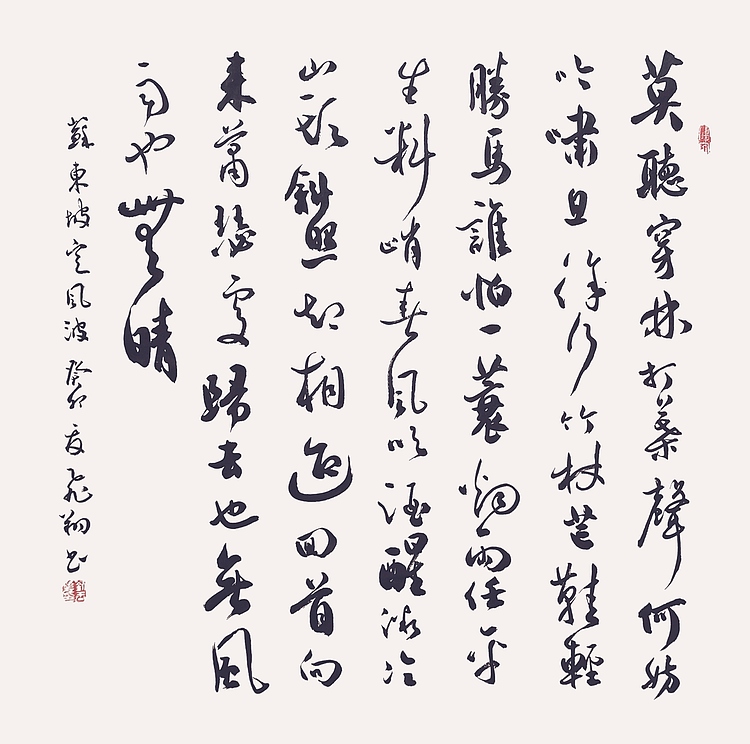 莫聽穿林打葉聲何妨
吟嘯且徐行竹杖芒鞋輕
勝馬誰怕一蓑烟雨任平
生料峭春風吹酒醒微冷
山頭斜照却相迎回首向
來蕭瑟處歸去也無風
雨也無晴
蘇東坡定風波 癸卯夏飛翔书